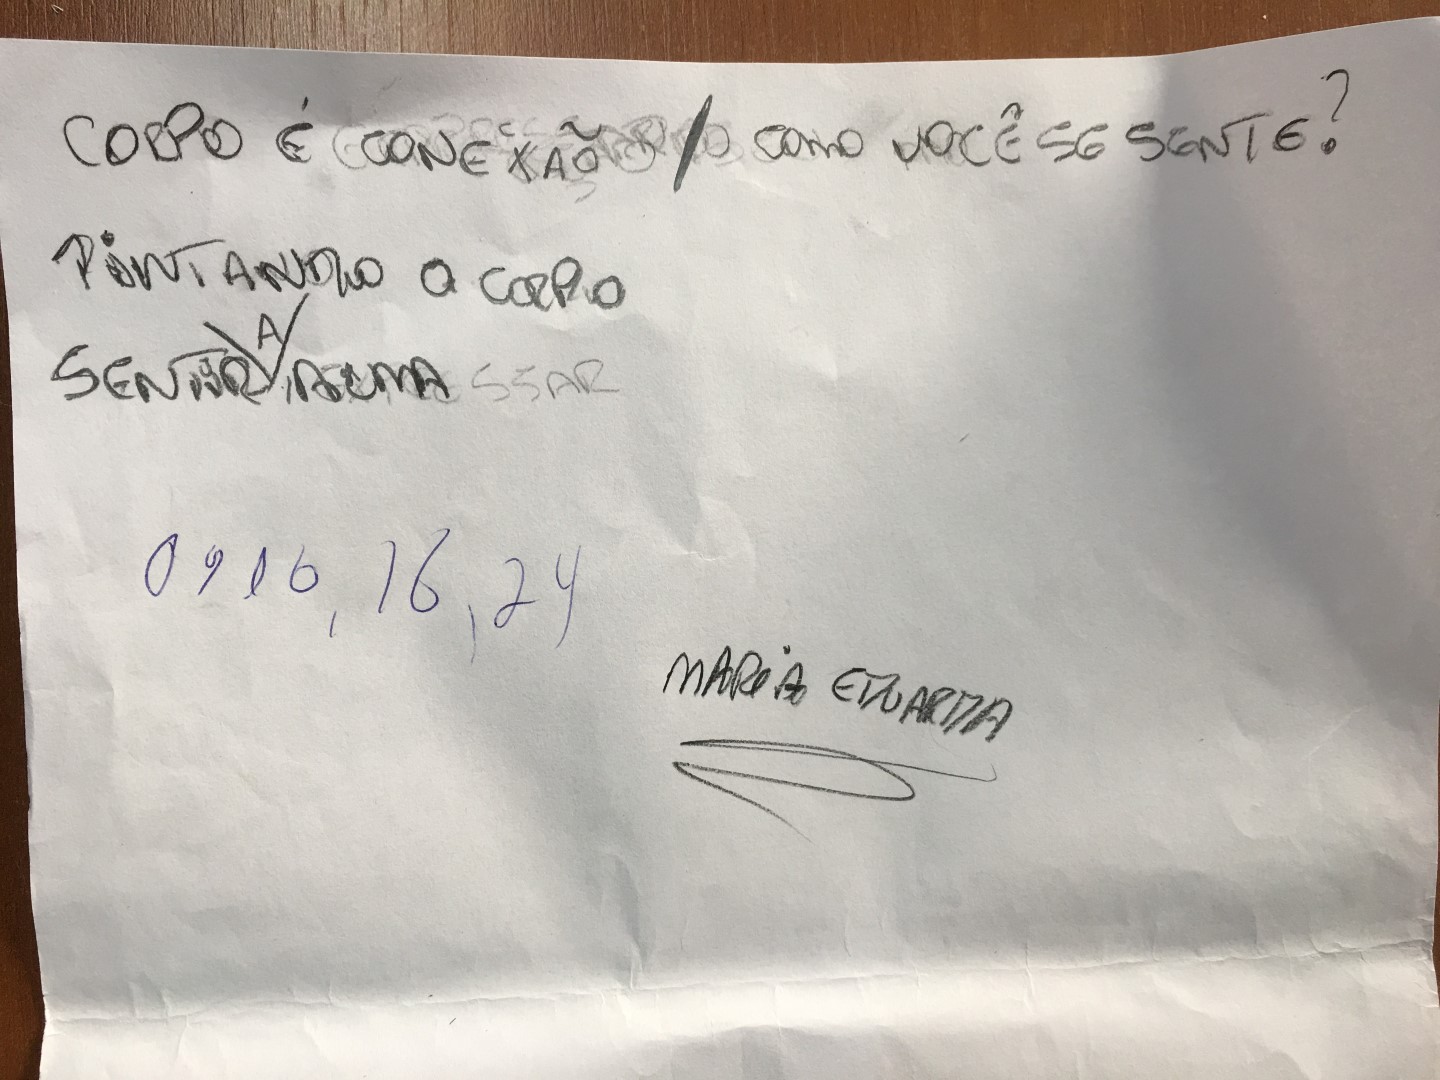 CORPO É CONEXÃO / COMO VOCÊ SE SENTE?
PINTANDO O CORPO
SENTIR A ALMA SSAR
0916, 16, 24
MARIA EDUARDA